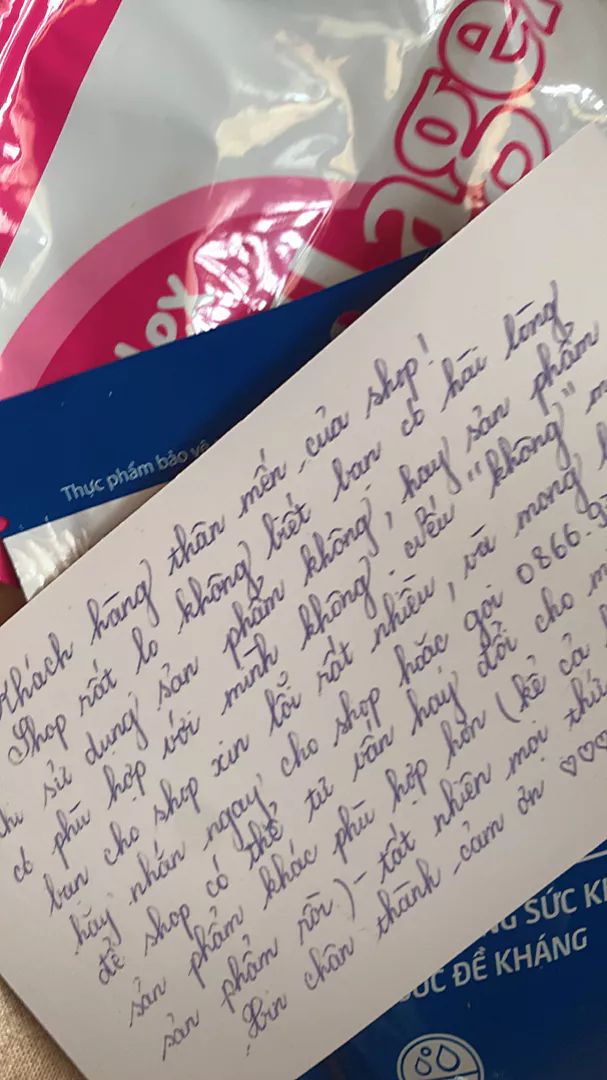 age
Thực phẩm bảo vệ
Khách hàng thân mến của shop!
Shop rất lo không biết bạn có hài lòng
khi sử dụng sản phẩm không, hay sản phẩm
có phù hợp với mình không. Nếu "không"
bạn cho shop xin lỗi rất nhiều, và mong
hãy nhắn ngay cho shop hoặc gọi 0866.9
để shop có thể tư vấn hay đổi cho
sản phẩm khác phù hợp hơn (kể cả
sản phẩm rồi) - tất nhiên mọi thứ
Xin chân thành cảm ơn ♡♡♡
SỨC
ĐỀ KHÁNG